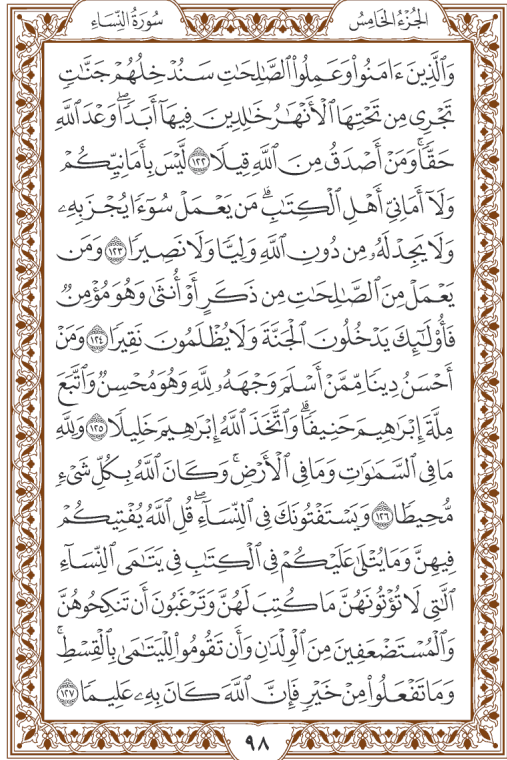 الجُزْءُ الخَامِسُ
سُورَةُ النِّسَاءِ
وَٱلَّذِينَ ءَامَنُواْ وَعَمِلُواْ ٱلصَّٰلِحَٰتِ سَنُدْخِلُهُمْ جَنَّٰتٍ
تَجْرِى مِن تَحْتِهَا ٱلْأَنْهَٰرُ خَٰلِدِينَ فِيهَآ أَبَدًاۖ وَعْدَ ٱللَّهِ
حَقًّاۚ وَمَنْ أَصْدَقُ مِنَ ٱللَّهِ قِيلًا ١٢٢ لَّيْسَ بِأَمَانِيِّكُمْ
وَلَآ أَمَانِىِّ أَهْلِ ٱلْكِتَٰبِۗ مَن يَعْمَلْ سُوٓءًا يُجْزَ بِهِۦ
وَلَا يَجِدْ لَهُۥ مِن دُونِ ٱللَّهِ وَلِيًّا وَلَا نَصِيرًا ١٢٣ وَمَن
يَعْمَلْ مِنَ ٱلصَّٰلِحَٰتِ مِن ذَكَرٍ أَوْ أُنثَىٰ وَهُوَ مُؤْمِنٌ
فَأُوْلَٰٓئِكَ يَدْخُلُونَ ٱلْجَنَّةَ وَلَا يُظْلَمُونَ نَقِيرًا ١٢٤ وَمَنْ
أَحْسَنُ دِينًا مِّمَّنْ أَسْلَمَ وَجْهَهُۥ لِلَّهِ وَهُوَ مُحْسِنٌ وَٱتَّبَعَ
مِلَّةَ إِبْرَٰهِيمَ حَنِيفًاۗ وَٱتَّخَذَ ٱللَّهُ إِبْرَٰهِيمَ خَلِيلًا ١٢٥ وَلِلَّهِ
مَا فِى ٱلسَّمَٰوَٰتِ وَمَا فِى ٱلْأَرْضِۚ وَكَانَ ٱللَّهُ بِكُلِّ شَىْءٍ
مُّحِيطًا ١٢٦ وَيَسْتَفْتُونَكَ فِى ٱلنِّسَآءِۖ قُلِ ٱللَّهُ يُفْتِيكُمْ
فِيهِنَّ وَمَا يُتْلَىٰ عَلَيْكُمْ فِى ٱلْكِتَٰبِ فِى يَتَٰمَى ٱلنِّسَآءِ
ٱلَّٰتِى لَا تُؤْتُونَهُنَّ مَا كُتِبَ لَهُنَّ وَتَرْغَبُونَ أَن تَنكِحُوهُنَّ
وَٱلْمُسْتَضْعَفِينَ مِنَ ٱلْوِلْدَٰنِ وَأَن تَقُومُواْ لِلْيَتَٰمَىٰ بِٱلْقِسْطِۚ
وَمَا تَفْعَلُواْ مِنْ خَيْرٍ فَإِنَّ ٱللَّهَ كَانَ بِهِۦ عَلِيمًا ١٢٧
٩٨